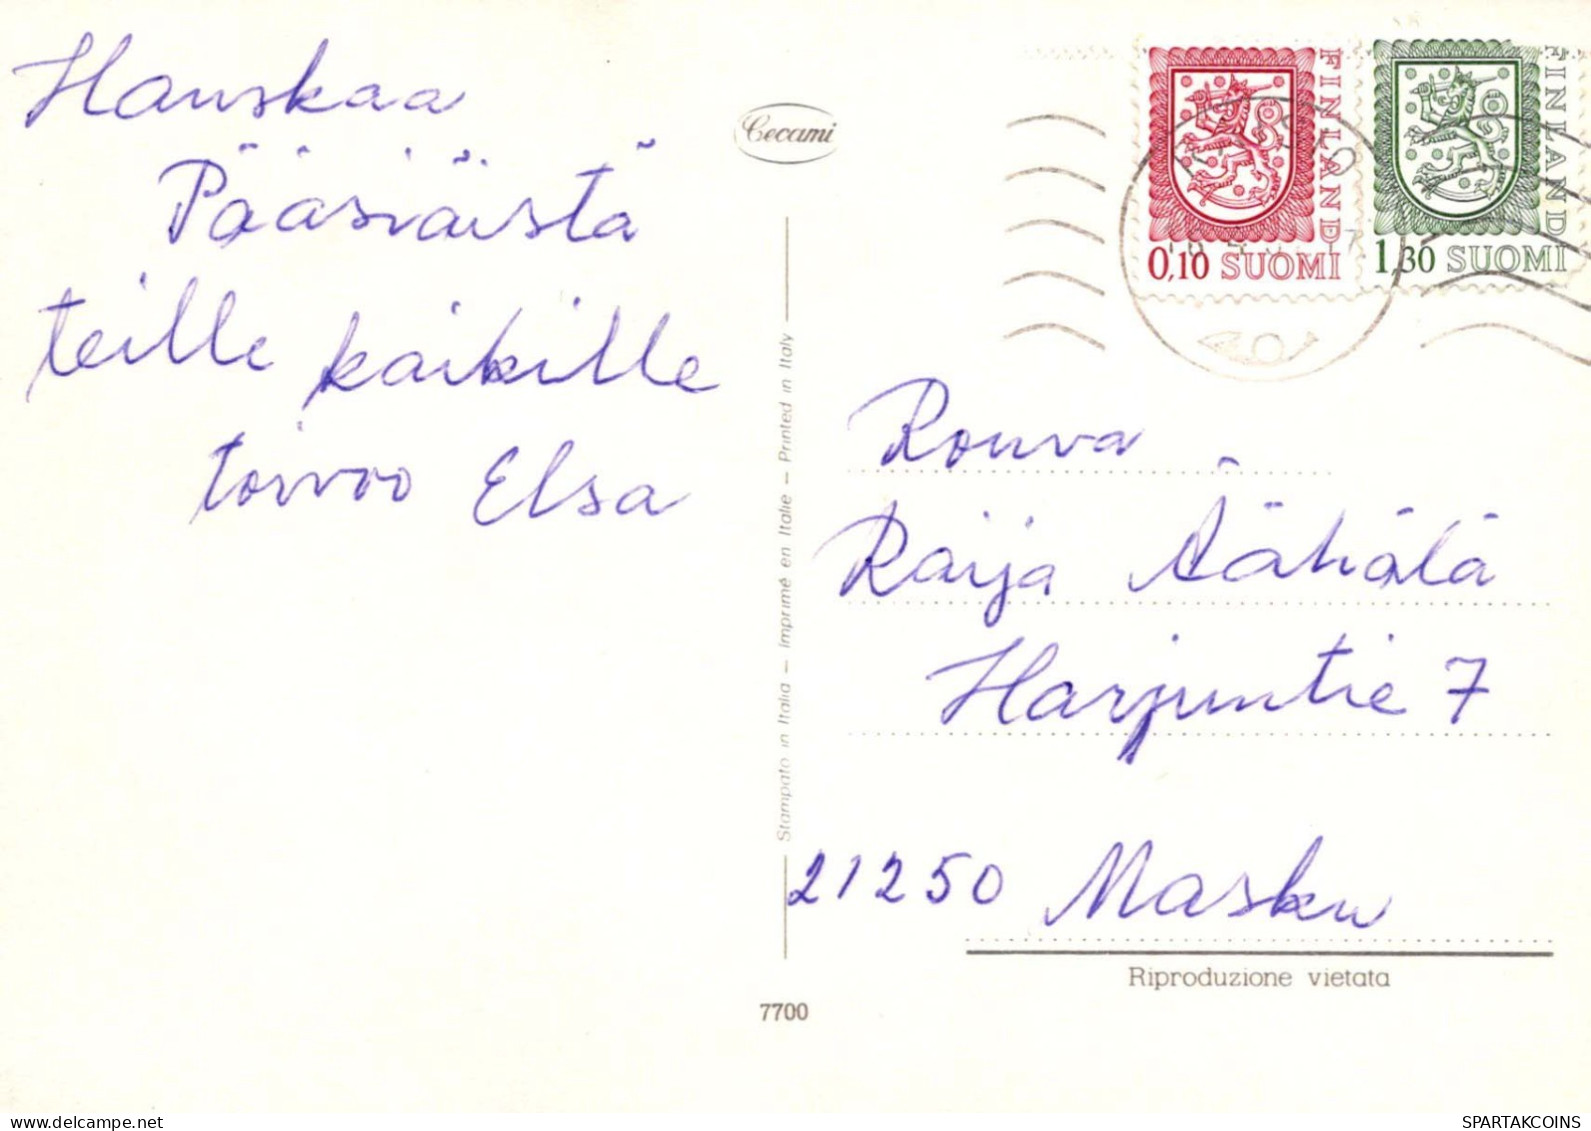 Hauskaa
Pääsiäistä
teille kaikille
toivoo Elsa
Cecami
Stampato in Italia – Imprimé en Italie – Printed in Italy
7700
FINLAND
0,10 SUOMI
FINLAND
1,30 SUOMI
Rouva
Raija Äähälä
Harjuntie 7
21250 Masku
Riproduzione vietata
delcampe.net
SPARTAKCOINS